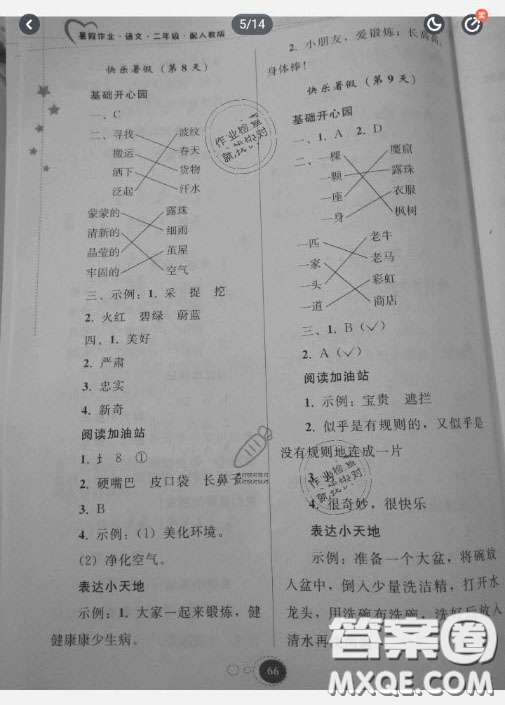 5/14
暑假作业·语文·二年级·配人教版
快乐暑假(第8天)
基础开心园
一、C
二、寻找 波纹
搬运 春天
洒下 货物
泛起 汗水
蒙蒙的 露珠
清新的 细雨
晶莹的 茧屋
牢固的 空气
三、示例:1. 采 捉 挖
2. 火红 碧绿 蔚蓝
四、1. 美好
2. 严肃
3. 忠实
4. 新奇
阅读加油站
1. 扌 8 ①
2. 硬嘴巴 皮口袋 长鼻子
3. B
4. 示例:(1)美化环境。
(2)净化空气。
表达小天地
示例:1. 大家一起来锻炼,健
健康康少生病。
2. 小朋友,爱锻炼;长高
身体棒!
快乐暑假(第9天)
基础开心园
一、1. A 2. D
二、一棵 魔扇
一颗 露珠
一座 衣服
一身 枫树
一匹 老牛
一家 老马
一头 彩虹
一道 商店
三、1. B(✓)
2. A(✓)
阅读加油站
1. 示例:宝贵 遮拦
2. 似乎是有规则的,又似乎是
没有规则地连成一片
3.
4. 很奇妙,很快乐
表达小天地
示例:准备一个大盆,将碗放
入盆中,倒入少量洗洁精,打开水
龙头,用洗碗布洗碗,洗好后放入
清水再
66
作业检查
就找 对
作业检查
就找 对
答案圈
MXQE.COM